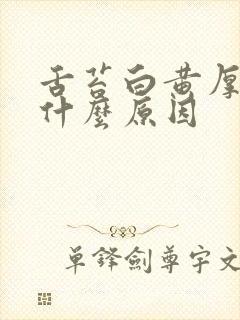 舌苔白黄厚
什麼原因
單鋒劍尊宇文